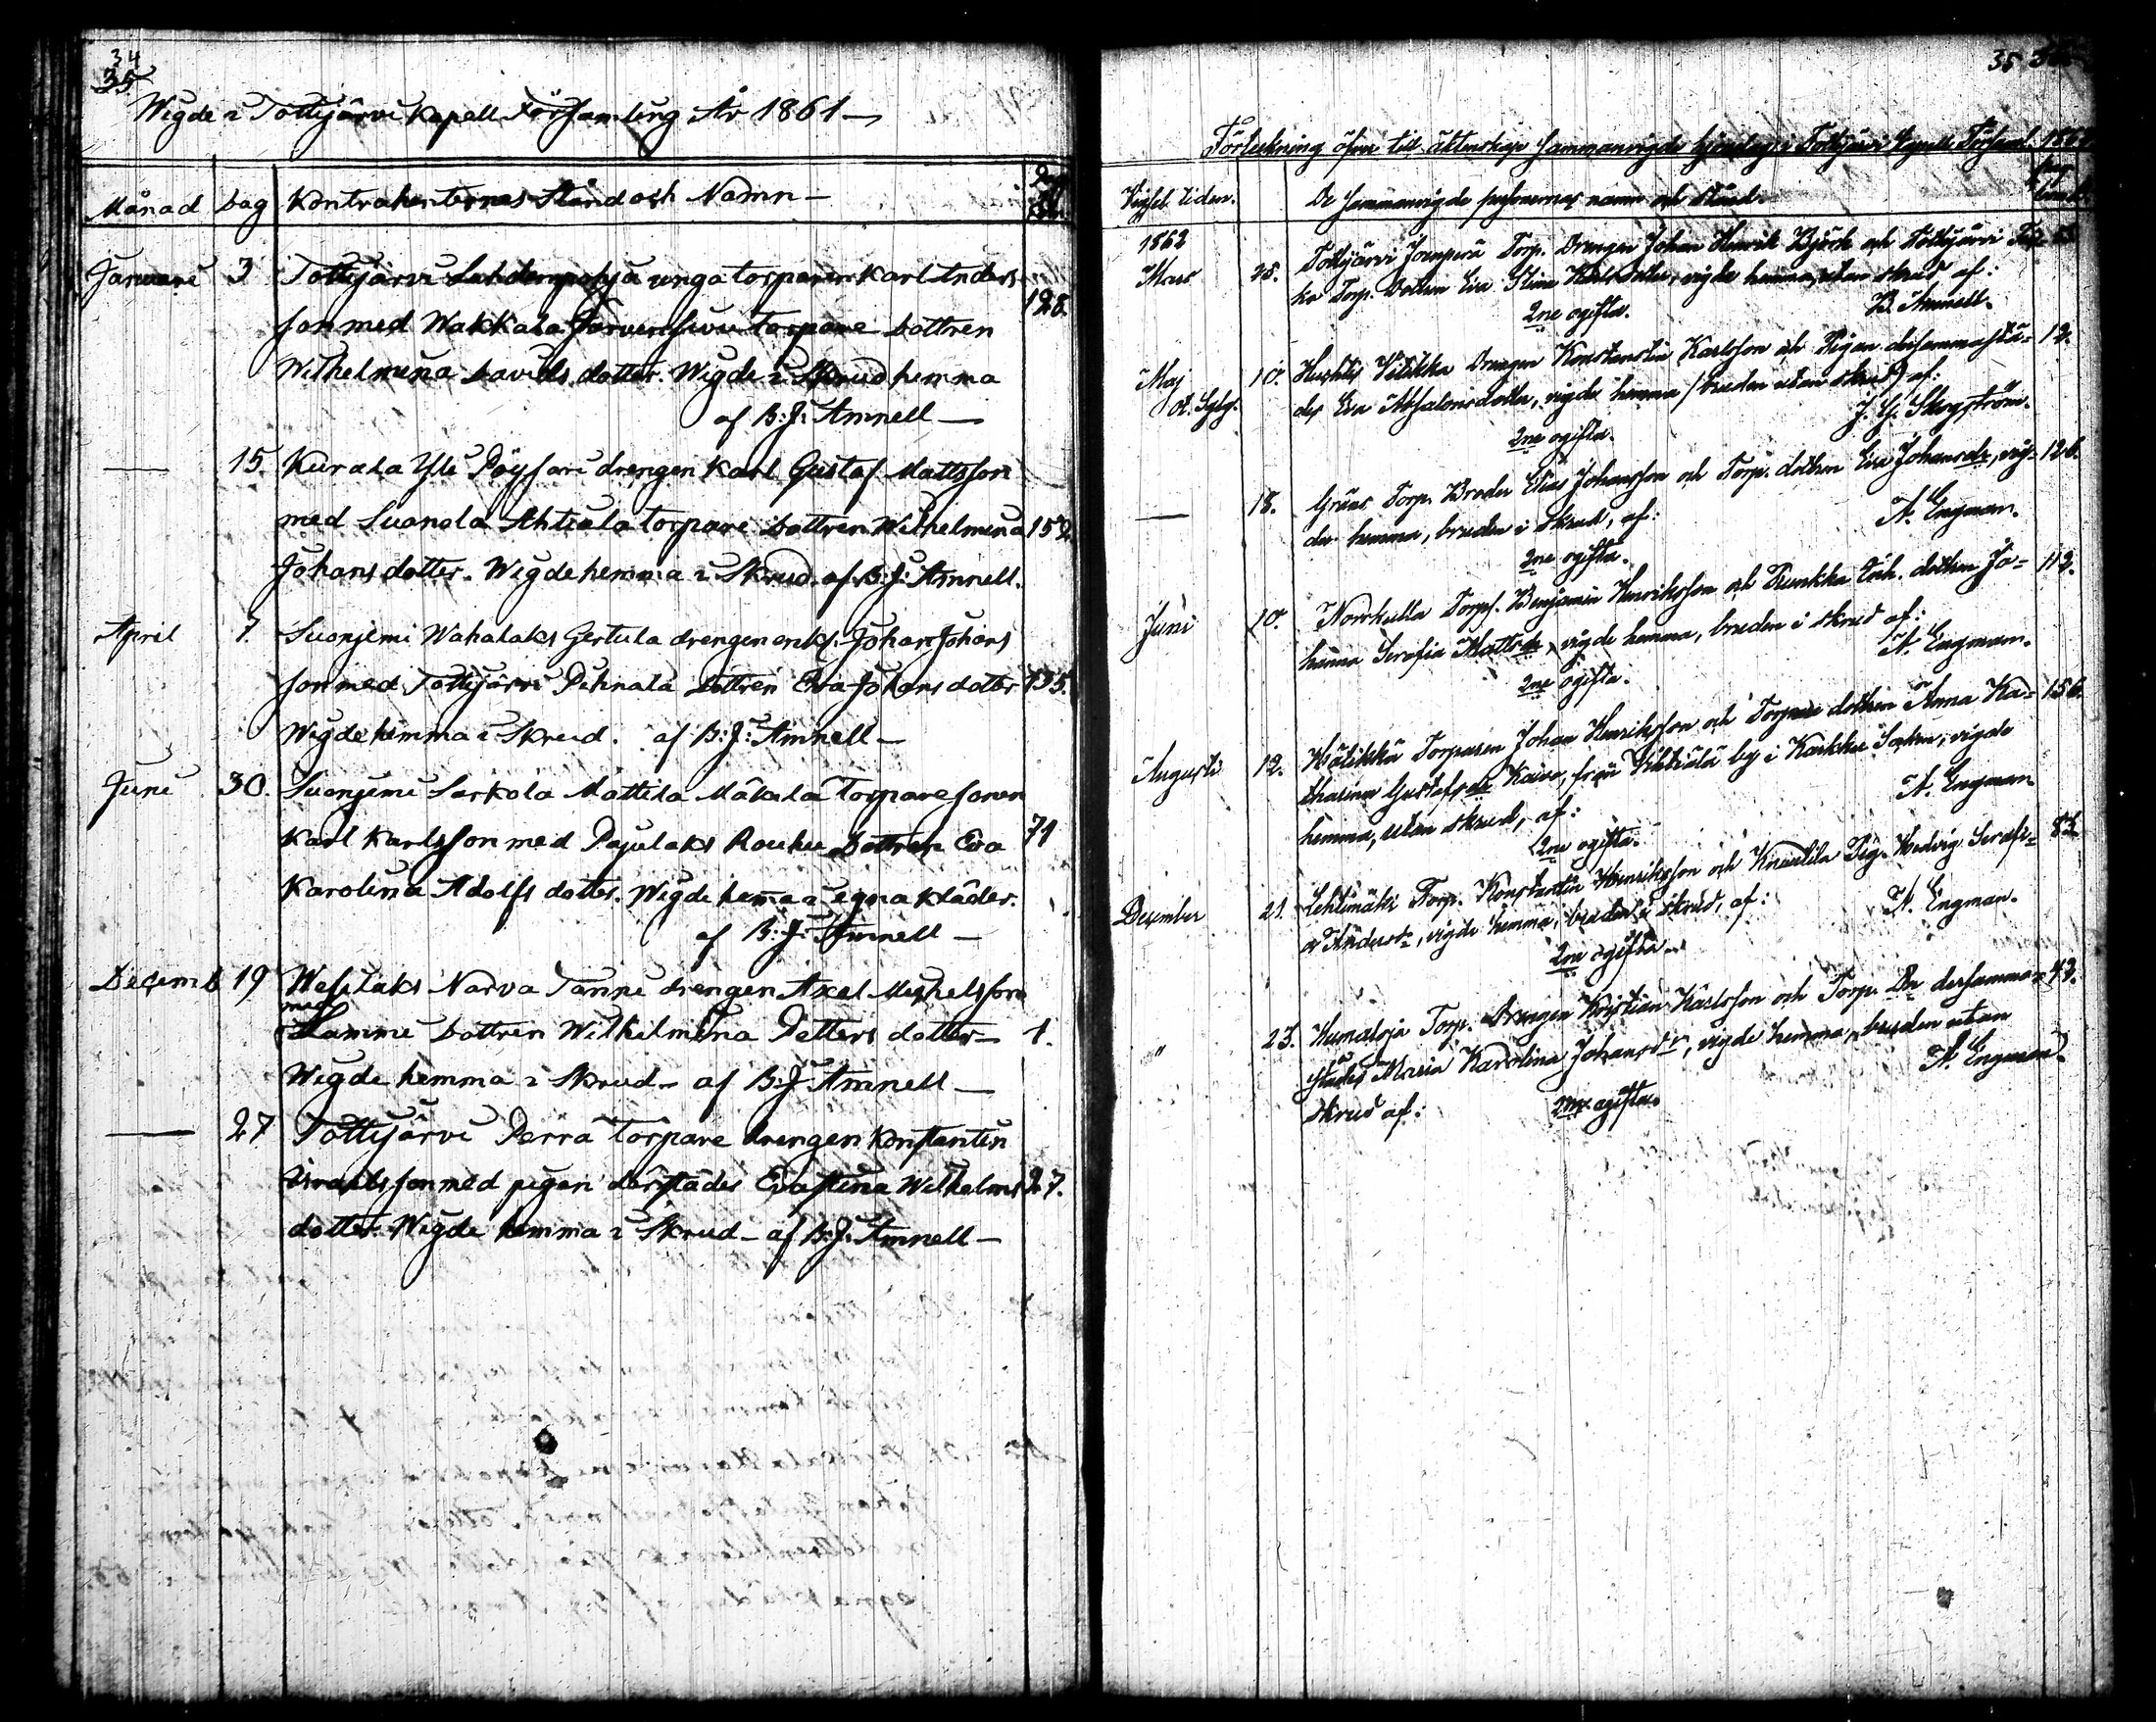 34
35.
Wigde i Tottijärvi Kapell Församling År 1861 —
Månad Dag Kontrahenternes Stånd och Namn —
Januari 3 Tottijärvi Lahdenpohja unga torparen Karl Anders
son med Wakkala Järvensivu torpare Dottren 128.
Wilhelmina Davids dotter. Wigde i Skrud hemma
af B: J: Amnell —
— 15. Kurala Yli Pöysari drengen Karl Gustaf Mattsson
med Suonola Ahtiala torpare Dottren Wilhelmina 152
Johans dotter. Wigde hemma i Skrud. af B: J: Amnell.
April 7 Suonjemi Wahalaks Gertula drengen enkl. Johan Johans
son med Tottijärvi Pihnala Dottren Eva Johans dotter 135.
Wigde hemma i Skrud. af B: J: Amnell —
Juni 30. Suonjemi Sarkola Mattila Mäkelä Torpare sonen
Karl Karlsson med Pajulaks Rouhu Dottren Eva 71
Karolina Adolfs dotter. Wigde hemma i egna kläder.
af B: J: Amnell —
Decemb 19 Wesilaks Narva Tanni drengen Axel Michelsson
med
Lammi Dottren Wilhelmina Petters dotter — 1.
Wigde hemma i Skrud — af B: J: Amnell —
— 27 Tottijärvi Perra torpare drengen Konstantin
Israelsson med pigan därstädes Eva Stina Wilhelms 27.
dotter. Wigde hemma i Skrud — af B: J: Amnell —
35
Förteckning öfver till äktenskap sammanvigde hjonelag i Tottijärvi Kapell Församl. 1862
Vigsel tiden. De sammanvigde personernas namn och stånd.
1862
Mars 25. Tottijärvi Joenperä Torp. Drengen Johan Henrik Björk och Tottijärvi
ka Torp. Dottren Eva Stina Karlsdotter, vigde hemma, utan skrud af:
2ne ogifta. B. Amnell.
Maj 10. Huhtis Välikka Drengen Konstantin Karlsson och Pigan dersammastä- 12.
des Eva Absalonsdotter, vigde hemma (bruden utan skrud) af:
2ne ogifta. J. G. Skogström.
— 18. Gräns Torp. Broder Elias Johansson och Torp. dottren Eva Johansdr, vig- 126.
de hemma, bruden i skrud, af: A. Engman.
2ne ogifta.
Juni 10. Norrkulla Torps. Benjamin Henriksson och Punkka Enk. dottren Jo- 112.
hanna Serafia Mattsdr, vigde hemma, bruden i skrud af:
2ne ogifta. A. Engman.
Augusti 12. Wälikkä Torparen Johan Henriksson och Torpare dottren Anna Ka- 156.
tharina Gustafsdr Kaivo, från Ahtiala by i Karkku Socken, vigde
hemma, utan skrud, af: A. Engman.
2ne ogifta.
December 21. Lehtimäki Torp. Konstantin Henriksson och Knuutila Pig. Hedvig Serafi- 83
a Andersdr, vigde hemma, bruden i skrud, af: A. Engman.
2ne ogifta.
" 23. Humaloja Torp. Drengen Kristian Karlsson och Torp. Dr dersamma- 42.
städes Maria Karolina Johansdr, vigde hemma, bruden utan
skrud af: 2ne ogifta. A. Engman.